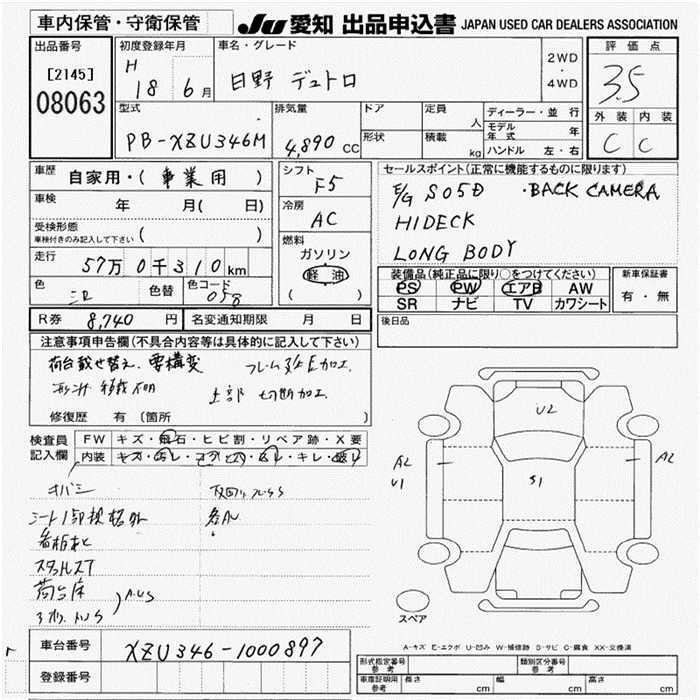 車内保管・守衛保管
JU 愛知 出品申込書 JAPAN USED CAR DEALERS ASSOCIATION
出品番号
[2145]
08063
初度登録年月
H 18 6月
車名・グレード
日野 デュトロ
2WD
・
4WD
評価点
3.5
外装 内装
C C
型式
PB-XZU346M
排気量
4,890 CC
ドア
形状
定員 人
積載 kg
ディーラー・並行
モデル年式 年
ハンドル 左・右
車歴
自家用・( 事業用 )
車検 年 月( 日)
受検形態
車検付きのみ記入して下さい ( )
走行
57万0千310km
色 色替 色コード
058
シフト
F5
冷房
AC
燃料
ガソリン
軽油
( )
セールスポイント(正常に機能するものに限ります)
E/G S05D ・BACK CAMERA
HIDECK
LONG BODY
装備品(純正品に限り○をつけてください)
PS PW エアB AW
SR ナビ TV カワシート
新車保証書
有・無
R券 8,740 円 名変通知期限 月 日
後日品
注意事項申告欄(不具合内容等は具体的に記入して下さい)
荷台載せ替え、要構変 フレーム 加工.
切断加工
修復歴 有 〔箇所 〕
検査員
記入欄
FW キズ・飛石・ヒビ割・リペア跡・X要
内装 キズ・汚レ・コゲ・穴・スレ・キレ・破レ
U2
A2
U1
S1
A2
スペア
A-キズ E-エクボ U-凹み W-補修跡 S-サビ C-腐食 XX-交換済
車台番号 XZU346-1000897
登録番号
形式指定番号
参考
類別区分番号
参考
車庫証明用
参考
長さ cm 幅 cm 高さ cm